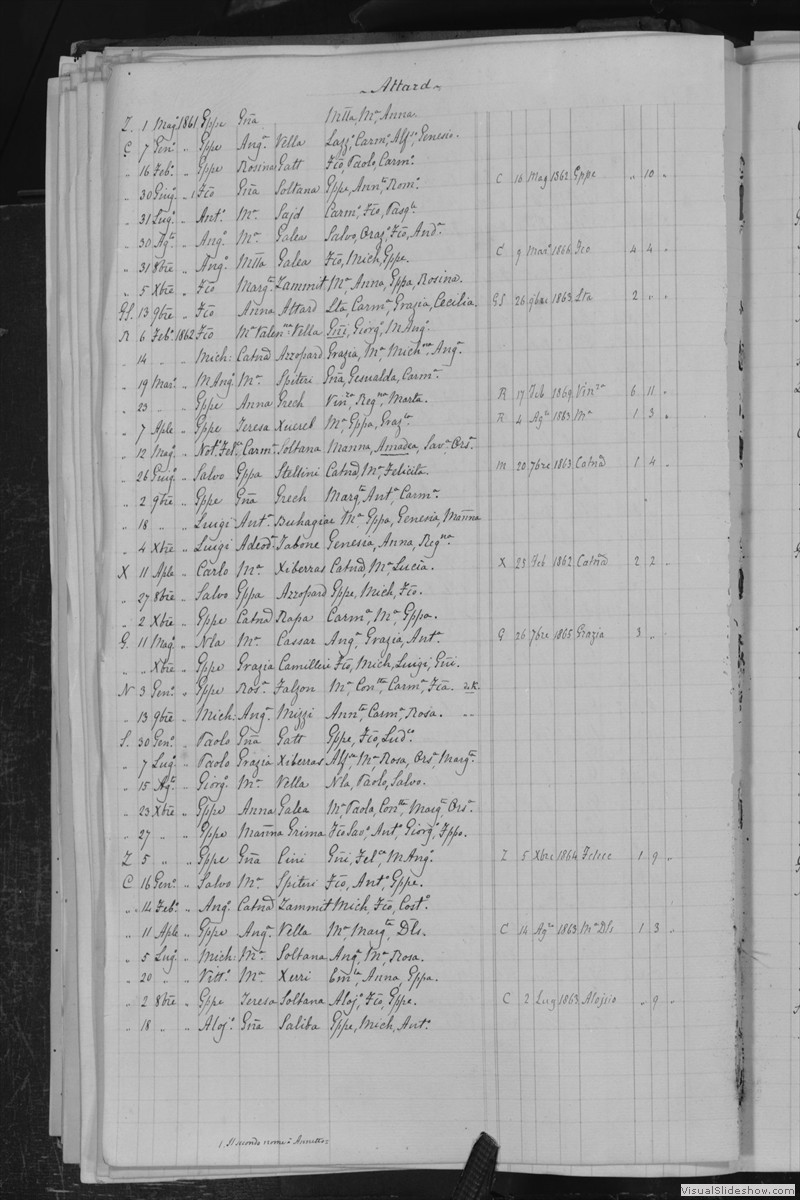 ~ Attard ~
Z. 1 Mag.º 1861 Eppe Gña Mtta, Mª, Anna
C 7 Gen.º „ Eppe Ang.ª Vella Lazz.º, Carm.º, Alf.º, Genesio.
„ 16 Feb.º „ Eppe Rosina Gatt Fço, Paolo, Carm.º
„ 30 Giug.º „ 1 Fço Gña Soltana Eppe, Ann.ta, Rom.º C 16 Mag 1862 Eppe „ 10 „
„ 31 Lug.º „ Ant.º Mª Sajd Carm.º, Fço, Pasq.le
„ 30 Ag.to „ Ang.º Mª Galea Salvo, Oraz.º, Fço, And.ª
„ 31 8bre „ Ang.º Mtta Galea Fço, Mich, Eppe. C 9 Mar.º 1866 Fco 4 4 „
„ 5 Xbre „ Fço Marg.ta Zammit Mª, Anna, Eppa, Rosina.
GS. 13 9bre „ Fço Anna Attard Sta, Carm.ª, Grazia, Cecilia. GS 26 9bre 1863 Sta 2 „ „
R 6 Feb.º 1862 Fço Mª Valen.na Vella Gñi, Giorg.º, M Ang.º
„ 14 „ „ Mich: Catnª Azzopard Grazia, Mª, Mich.na, Ang.ª
„ 19 Mar.º „ M Ang.º Mª Spiteri Gña, Gesualda, Carm.ª
„ 23 „ „ Eppe Anna Grech Vin.za, Reg.na, Marta. R 17 Feb 1869 Vin.za 6 11 „
„ 7 Aple „ Eppe Teresa Xuereb Mª, Eppa, Graz.ta R 4 Ag.to 1863 Mª 1 3 „
„ 12 Mag.º „ Not.º Fel.ce Carm.ª Soltana Manna, Amadea, Sav.ª, Ors.ª
„ 26 Giug.º „ Salvo Eppa Stellini Catnª, Mª, Felicita. M 20 7bre 1863 Catnª 1 4 „
„ 2 9bre „ Eppe Gña Grech Marg.ta, Ant.ª, Carm.ª
„ 18 „ „ Luigi Ant.ª Buhagiar Mª, Eppa, Genesia, Manna
„ 4 Xbre „ Luigi Adeod.ª Tabone Genesia, Anna, Reg.na
X 11 Aple „ Carlo Mª Xiberras Catnª, Mª, Lucia. X 23 Feb 1862 Catnª 2 2 „
„ 27 8bre „ Salvo Eppa Azzopard Eppe, Mich, Fço.
„ 2 Xbre „ Eppe Catnª Rapa Carm.ª, Mª, Eppa.
G. 11 Mag.º „ Nla Mª Cassar Ang.ª, Grazia, Ant.ª G 26 7bre 1865 Grazia 3 „
„ „ Xbre „ Eppe Grazia Camilleri Fço, Mich, Luigi, Gñi.
N 3 Gen.º „ Eppe Ros.ª Falzon Mª, Con.tta, Carm.ª, Fca.
„ 13 9bre „ Mich: Ang.ª Mizzi Ann.ta, Carm.ª, Rosa. „ „
S. 30 Gen.º „ Paolo Gña Gatt Eppe, Fço, Lud.co
„ 7 Lug.º „ Paolo Grazia Xiberras Alf.na, Mª, Rosa, Ors.ª, Marg.ta
„ 15 Ag.to „ Giorg.º Mª Vella Nla, Paolo, Salvo.
„ 23 Xbre „ Eppe Anna Galea Mª, Paola, Con.tta, Marg.ta, Ors.ª
„ 27 „ „ Eppe Manna Grima Fço Sav.º, Ant.º, Giorg.º, Fppo.
Z 5 „ „ Eppe Gña Cini Gñi, Fel.ce, M Ang.º Z 5 Xbre 1864 Felice 1 9 „
C 16 Gen.º „ Salvo Mª Spiteri Fço, Ant.º, Eppe.
„ 14 Feb.º „ Ang.º Catnª Zammit Mich, Fço, Cost.º
„ 11 Aple „ Eppe Ang.ª Vella Mª, Marg.ta, Dls. C 14 Ag.to 1863 Mª Dls 1 3 „
„ 5 Lug.º „ Mich: Mª Soltana Ang.ª, Mª, Rosa.
„ 20 „ „ Vitt.º Mª Xerri Em.la, Anna, Eppa.
„ 2 8bre „ Eppe Teresa Soltana Aloj.º, Fço, Eppe. C 2 Lug 1863 Alojsio „ 9 „
„ 18 „ „ Aloj.º Gña Saliba Eppe, Mich, Ant.º
1 Il secondo nome è Annetto
VisualSlideshow.com